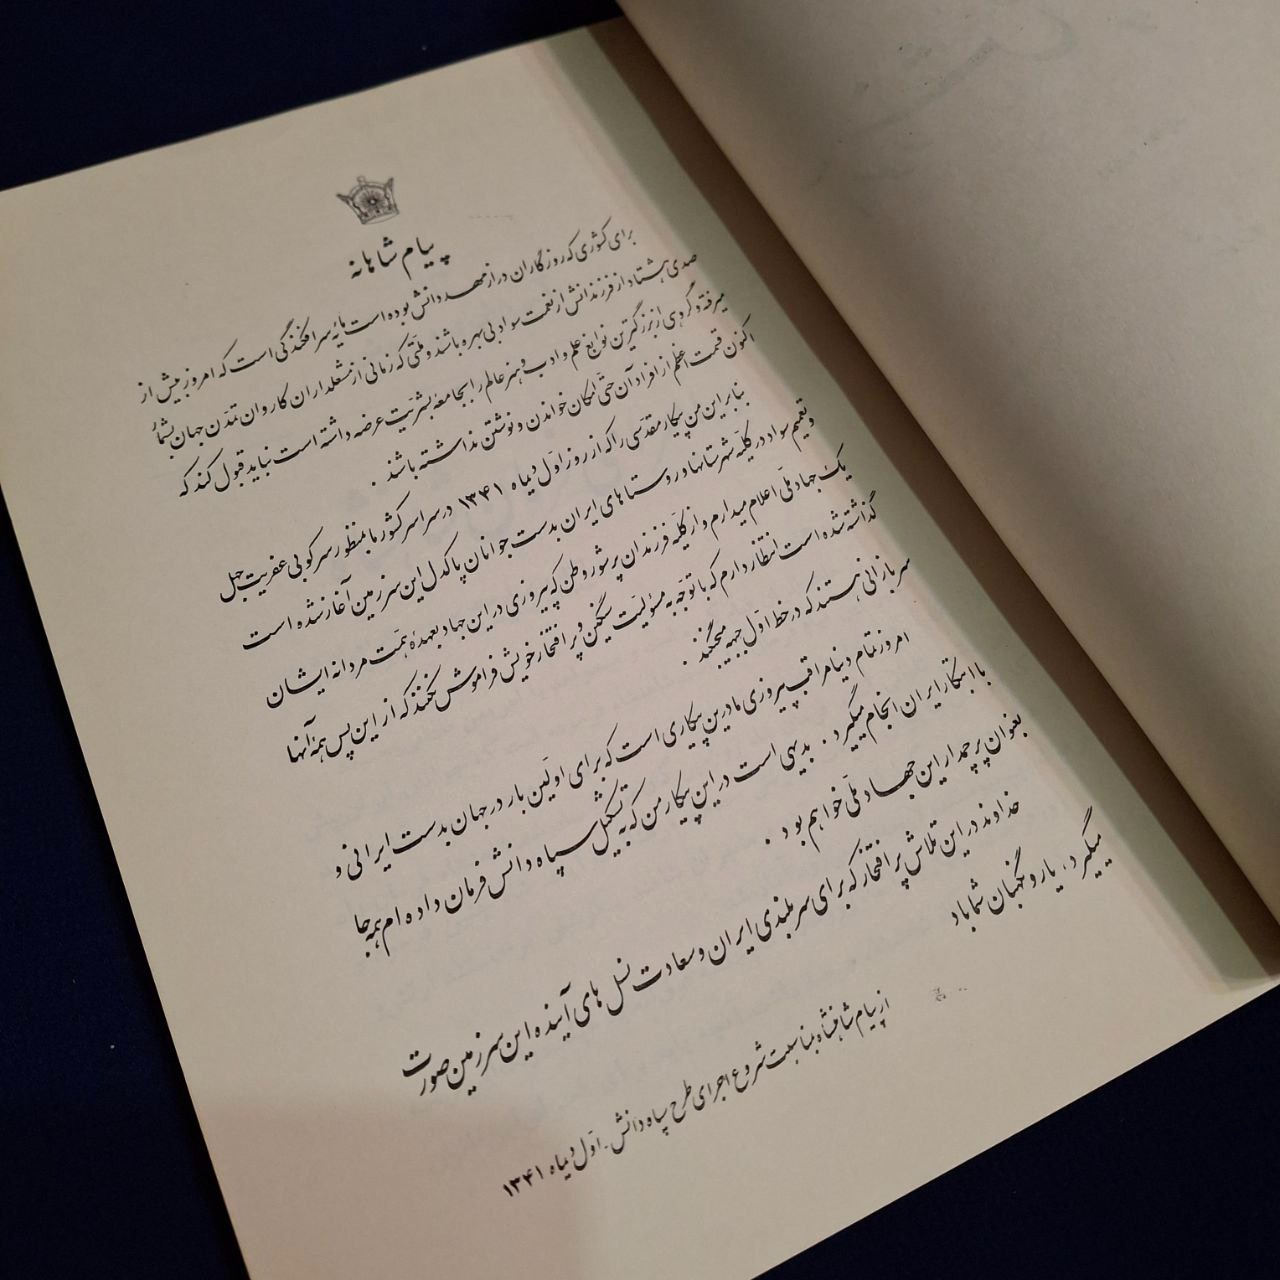 پیام شاهانه
برای کشوری که روزگاران دراز مهد دانش بوده است مایهٔ سرافکندگی است که امروز بیش از
صدی هشتاد از فرزندانش از نعمت سواد بی بهره باشند و ملّتی که زمانی از مشعلداران کاروان تمدّن جهان بشمار
میرفته و گروهی از بزرگترین نوابغ علم و ادب و هنر عالم را بجامعهٔ بشریّت عرضه داشته است نباید قبول کند که
اکنون قسمت اعظم از افراد آن حتّی امکان خواندن و نوشتن نداشته باشند .
بنابراین من پیکار مقدّسی را که از روز اوّل دیماه ۱۳۴۱ در سراسر کشور ما بمنظور سرکوبی عفریت جهل
و تعمیم سواد در کلیّه شهرستانها و روستاهای ایران بدست جوانان پاکدل این سرزمین آغاز شده است
یک جهاد ملّی اعلام میدارم و از کلیّه فرزندان پرشور وطن که پیروزی در این جهاد بعهدهٔ همّت مردانه ایشان
گذاشته شده است انتظار دارم که با توجّه به مسؤلیّت سنگین و پر افتخار خویش فراموش نکنند که از این پس همهٔ آنها
سربازانی هستند که در خط اوّل جبهه میجنگند .
امروز تمام دنیا مراقب پیروزی ما در این پیکاری است که برای اوّلین بار در جهان بدست ایرانی و
با ابتکار ایران انجام میگیرد . بدیهی است در این پیکار من که به تشکیل سپاه دانش فرمان داده ام همه جا
بعنوان پرچمدار این جهاد ملّی خواهم بود .
خداوند در این تلاش پر افتخار که برای سربلندی ایران و سعادت نسل های آینده این سرزمین صورت
میگیرد . یار و نگهبان شما باد
از پیام شاهنشاه بمناسبت شروع اجرای طرح سپاه دانش - اوّل دیماه ۱۳۴۱